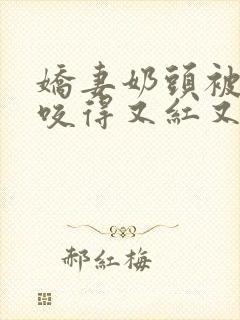 嬌妻奶頭被
咬得又紅又
郝紅梅